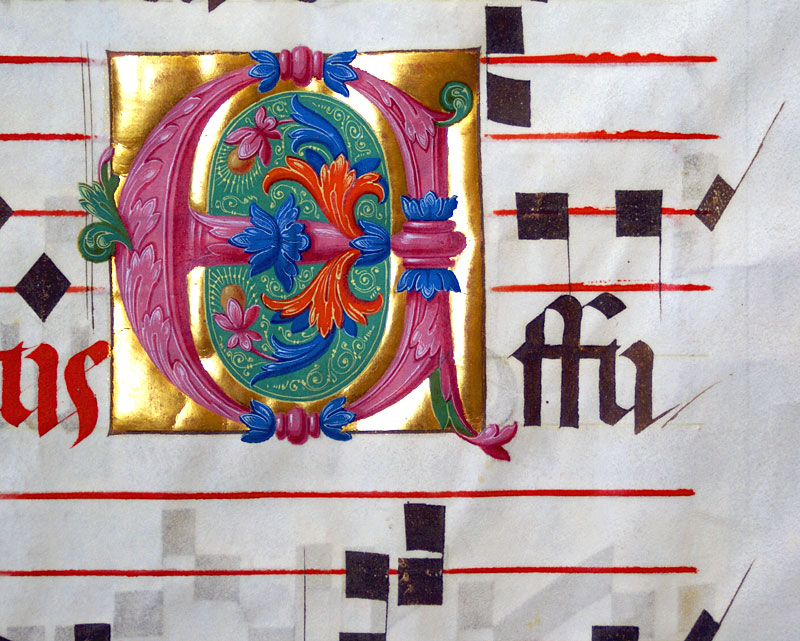 us Effu